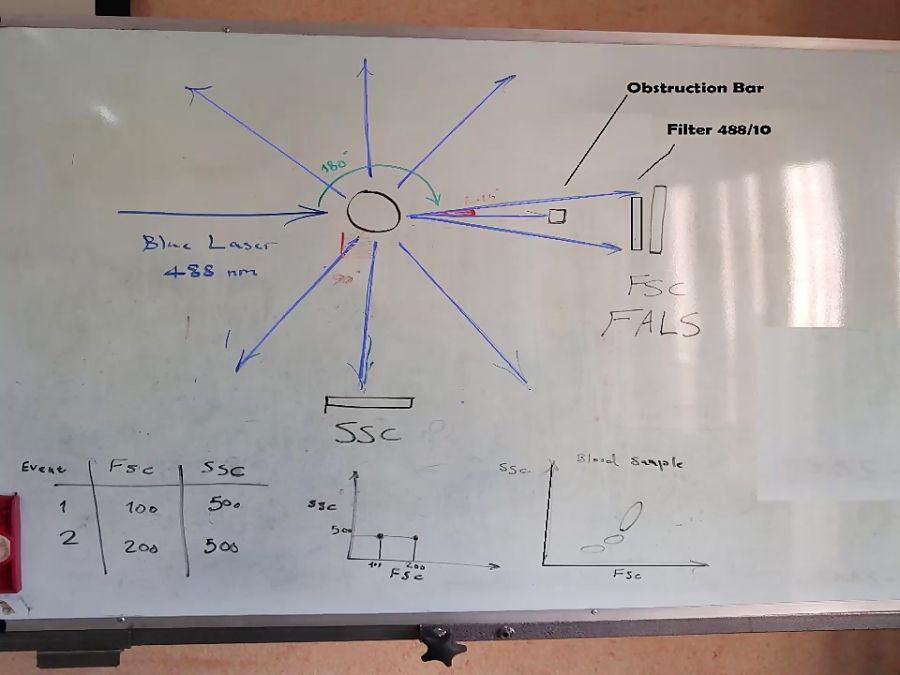 Obstruction Bar
Filter 488/10
180°
Blue Laser
488 nm
90°
FSC
FALS
SSC
Event FSC SSC
1 100 500
2 200 500
SSC
500
100 200
FSC
Blood Sample
SSC
FSC